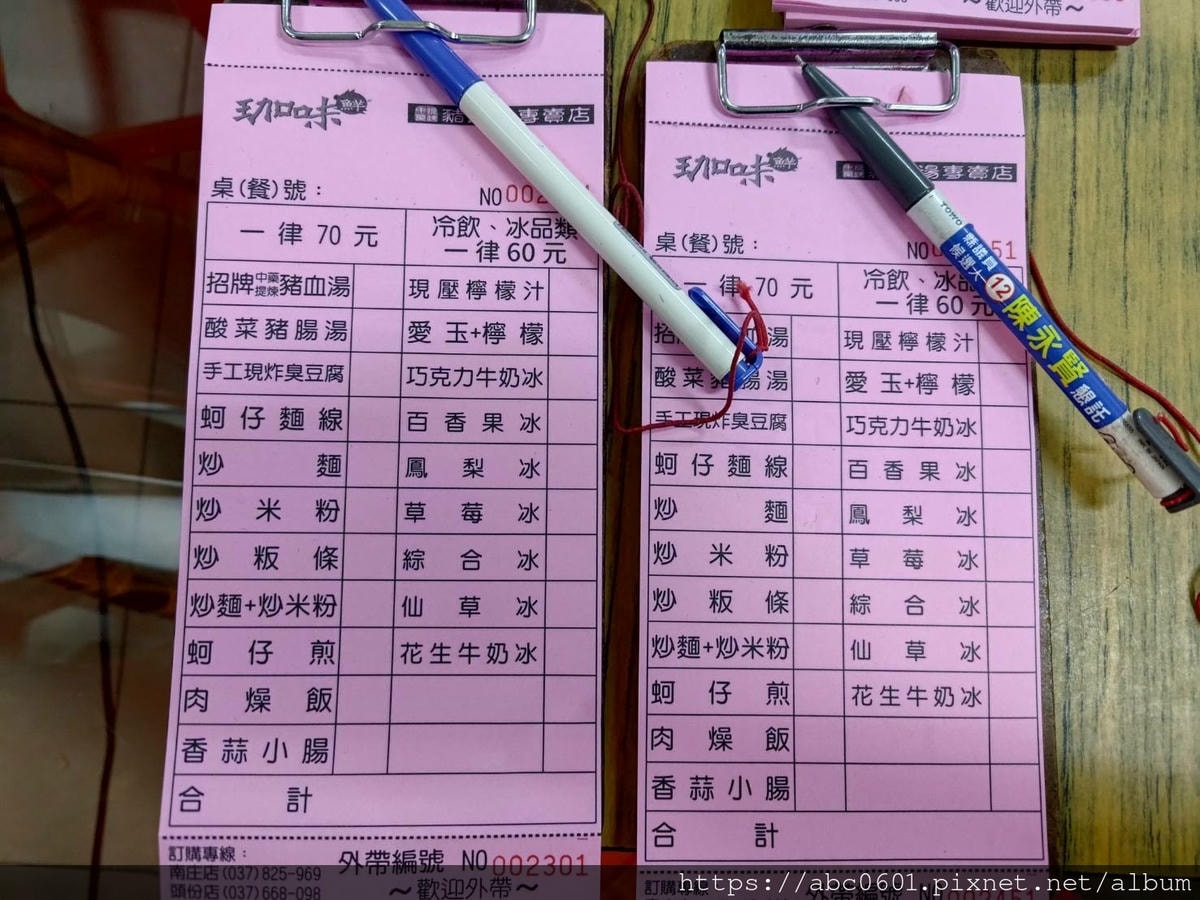 ~歡迎外帶~
珈味鮮 專賣店
桌(餐)號：
NO 002
一律 70 元
冷飲、冰品類
一律 60 元
招牌中藥提煉豬血湯
現壓檸檬汁
酸菜豬腸湯
愛玉+檸檬
手工現炸臭豆腐
巧克力牛奶冰
蚵仔麵線
百香果冰
炒麵
鳳梨冰
炒米粉
草莓冰
炒粄條
綜合冰
炒麵+炒米粉
仙草冰
蚵仔煎
花生牛奶冰
肉燥飯
香蒜小腸
合計
訂購專線：
南庄店(037)825-969
頭份店(037)668-098
外帶編號 NO 002301
~歡迎外帶~
珈味鮮 湯專賣店
桌(餐)號：
NO 51
一律 70 元
冷飲、冰品
一律 60 元
招 血湯
現壓檸檬汁
酸菜豬腸湯
愛玉+檸檬
手工現炸臭豆腐
巧克力牛奶冰
蚵仔麵線
百香果冰
炒麵
鳳梨冰
炒米粉
草莓冰
炒粄條
綜合冰
炒麵+炒米粉
仙草冰
蚵仔煎
花生牛奶冰
肉燥飯
香蒜小腸
合計
訂購專線
外帶編號 NO 002451
TOWO
縣議員
候選人
12
陳永賢
懇託
https://abc0601.pixnet.net/album